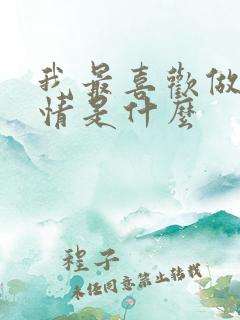 我最喜歡做
情是什麼
程子
未经同意禁止转载